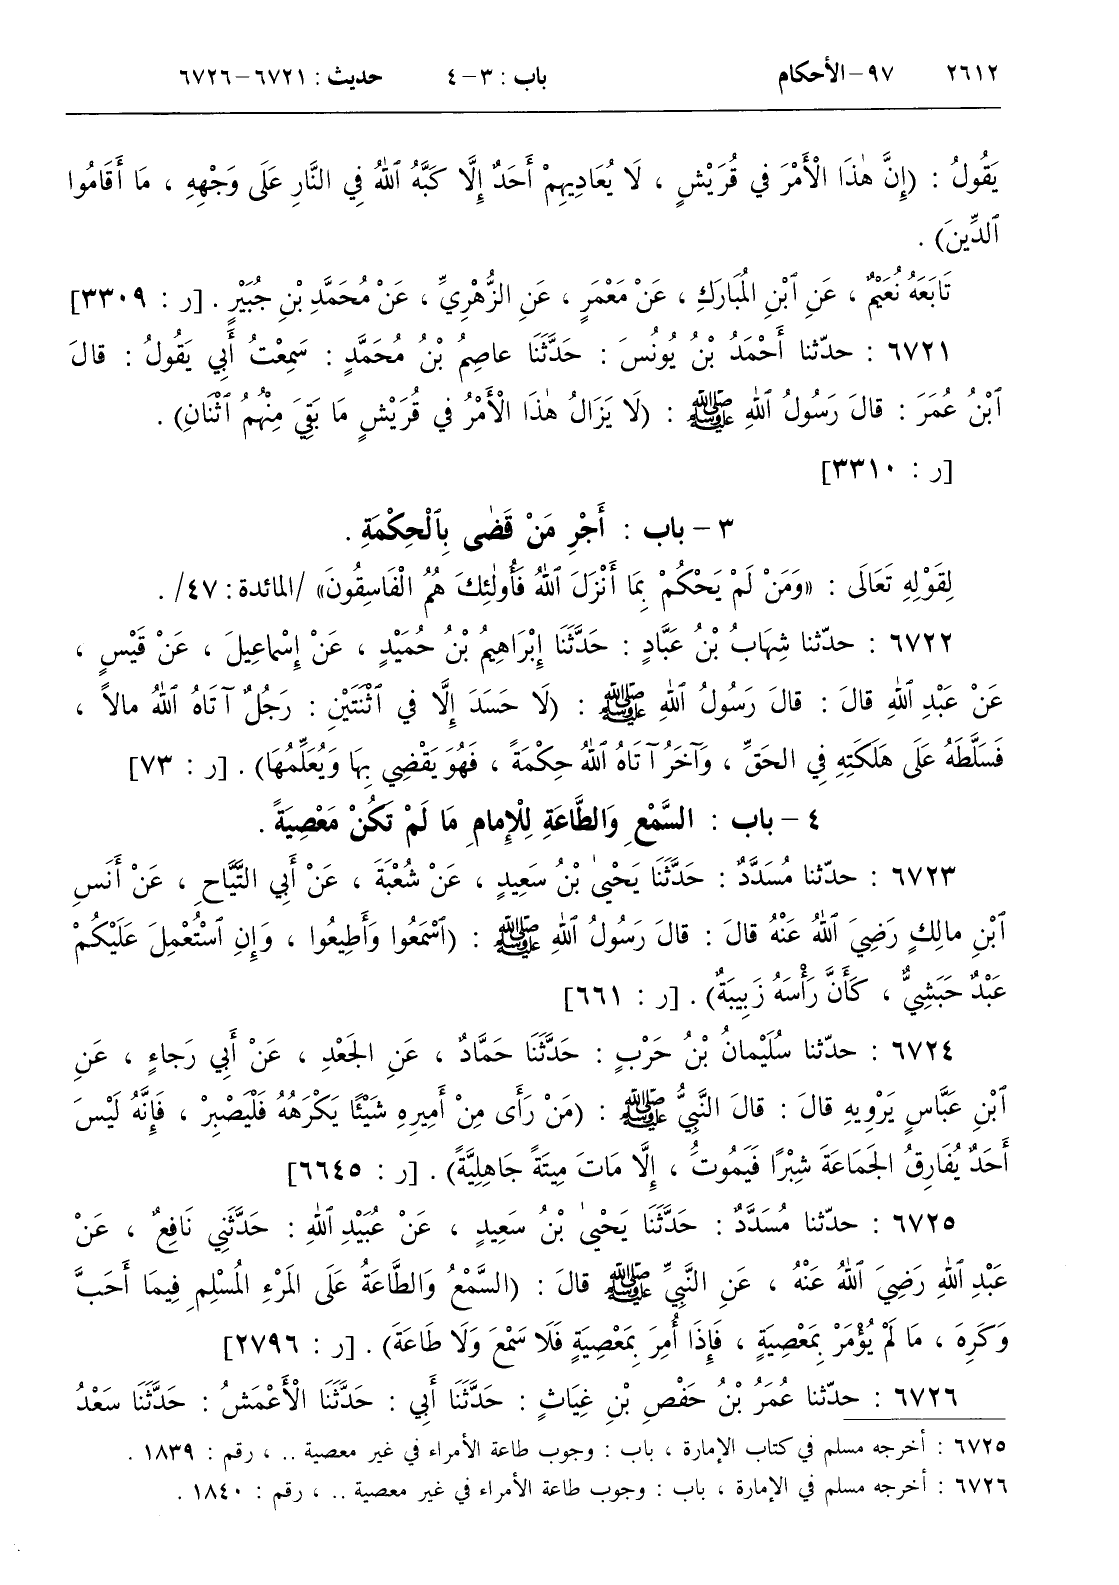 ٢٦١٢ ٩٧-الأحكام باب : ٣-٤ حديث : ٦٧٢١-٦٧٢٦
يَقُولُ : (إِنَّ هٰذَا الْأَمْرَ فِي قُرَيْشٍ ، لَا يُعَادِيهِمْ أَحَدٌ إِلَّا كَبَّهُ ٱللهُ فِي النَّارِ عَلَى وَجْهِهِ ، مَا أَقَامُوا
ٱلدِّينَ) .
تَابَعَهُ نُعَيْمٌ ، عَنِ ٱبْنِ الْمُبَارَكِ ، عَنْ مَعْمَرٍ ، عَنِ الزُّهْرِيِّ ، عَنْ مُحَمَّدِ بْنِ جُبَيْرٍ . [ر : ٣٣٠٩]
٦٧٢١ : حدّثنا أَحْمَدُ بْنُ يُونُسَ : حَدَّثَنَا عاصِمُ بْنُ مُحَمَّدٍ : سَمِعْتُ أَبِي يَقُولُ : قالَ
ٱبْنُ عُمَرَ : قالَ رَسُولُ ٱللهِ ﷺ : (لَا يَزَالُ هٰذَا الْأَمْرُ فِي قُرَيْشٍ مَا بَقِيَ مِنْهُمُ ٱثْنَانِ) .
[ر : ٣٣١٠]
٣ - باب : أَجْرِ مَنْ قَضَى بِٱلْحِكْمَةِ .
لِقَوْلِهِ تَعَالَى : «وَمَنْ لَمْ يَحْكُمْ بِمَا أَنْزَلَ ٱللهُ فَأُولَئِكَ هُمُ الْفَاسِقُونَ» /المائدة: ٤٧/ .
٦٧٢٢ : حدّثنا شِهَابُ بْنُ عَبَّادٍ : حَدَّثَنَا إِبْرَاهِيمُ بْنُ حُمَيْدٍ ، عَنْ إِسْماعِيلَ ، عَنْ قَيْسٍ ،
عَنْ عَبْدِ ٱللهِ قالَ : قالَ رَسُولُ ٱللهِ ﷺ : (لَا حَسَدَ إِلَّا فِي ٱثْنَتَيْنِ : رَجُلٌ آتَاهُ ٱللهُ مالاً ،
فَسَلَّطَهُ عَلَى هَلَكَتِهِ فِي الحَقِّ ، وَآخَرُ آتَاهُ ٱللهُ حِكْمَةً ، فَهُوَ يَقْضِي بِهَا وَيُعَلِّمُهَا) . [ر : ٧٣]
٤ - باب : السَّمْعِ وَالطَّاعَةِ لِلْإمامِ مَا لَمْ تَكُنْ مَعْصِيَةً .
٦٧٢٣ : حدّثنا مُسَدَّدٌ : حَدَّثَنَا يَحْيىٰ بْنُ سَعِيدٍ ، عَنْ شُعْبَةَ ، عَنْ أَبِي التَّيَّاحِ ، عَنْ أَنَسِ
ٱبْنِ مالِكٍ رَضِيَ ٱللهُ عَنْهُ قالَ : قالَ رَسُولُ ٱللهِ ﷺ : (ٱسْمَعُوا وَأَطِيعُوا ، وَإِنِ ٱسْتُعْمِلَ عَلَيْكُمْ
عَبْدٌ حَبَشِيٌّ ، كَأَنَّ رَأْسَهُ زَبِيبَةٌ) . [ر : ٦٦١]
٦٧٢٤ : حدّثنا سُلَيْمانُ بْنُ حَرْبٍ : حَدَّثَنَا حَمَّادٌ ، عَنِ الجَعْدِ ، عَنْ أَبِي رَجاءٍ ، عَنِ
ٱبْنِ عَبَّاسٍ يَرْوِيهِ قالَ : قالَ النَّبِيُّ ﷺ : (مَنْ رَأَى مِنْ أَمِيرِهِ شَيْئًا يَكْرَهُهُ فَلْيَصْبِرْ ، فَإِنَّهُ لَيْسَ
أَحَدٌ يُفَارِقُ الجَمَاعَةَ شِبْرًا فَيَمُوتُ ، إِلَّا مَاتَ مِيتَةً جَاهِلِيَّةً) . [ر : ٦٦٤٥]
٦٧٢٥ : حدّثنا مُسَدَّدٌ : حَدَّثَنَا يَحْيىٰ بْنُ سَعِيدٍ ، عَنْ عُبَيْدِ ٱللهِ : حَدَّثَنِي نَافِعٌ ، عَنْ
عَبْدِ ٱللهِ رَضِيَ ٱللهُ عَنْهُ ، عَنِ النَّبِيِّ ﷺ قالَ : (السَّمْعُ وَالطَّاعَةُ عَلَى المَرْءِ المُسْلِمِ فِيمَا أَحَبَّ
وَكَرِهَ ، مَا لَمْ يُؤْمَرْ بِمَعْصِيَةٍ ، فَإِذَا أُمِرَ بِمَعْصِيَةٍ فَلَا سَمْعَ وَلَا طَاعَةَ) . [ر : ٢٧٩٦]
٦٧٢٦ : حدّثنا عُمَرُ بْنُ حَفْصِ بْنِ غِيَاثٍ : حَدَّثَنَا أَبِي : حَدَّثَنَا الْأَعْمَشُ : حَدَّثَنَا سَعْدُ
٦٧٢٥ : أخرجه مسلم في كتاب الإمارة ، باب : وجوب طاعة الأمراء في غير معصية .. ، رقم : ١٨٣٩ .
٦٧٢٦ : أخرجه مسلم في الإمارة ، باب : وجوب طاعة الأمراء في غير معصية .. ، رقم : ١٨٤٠ .